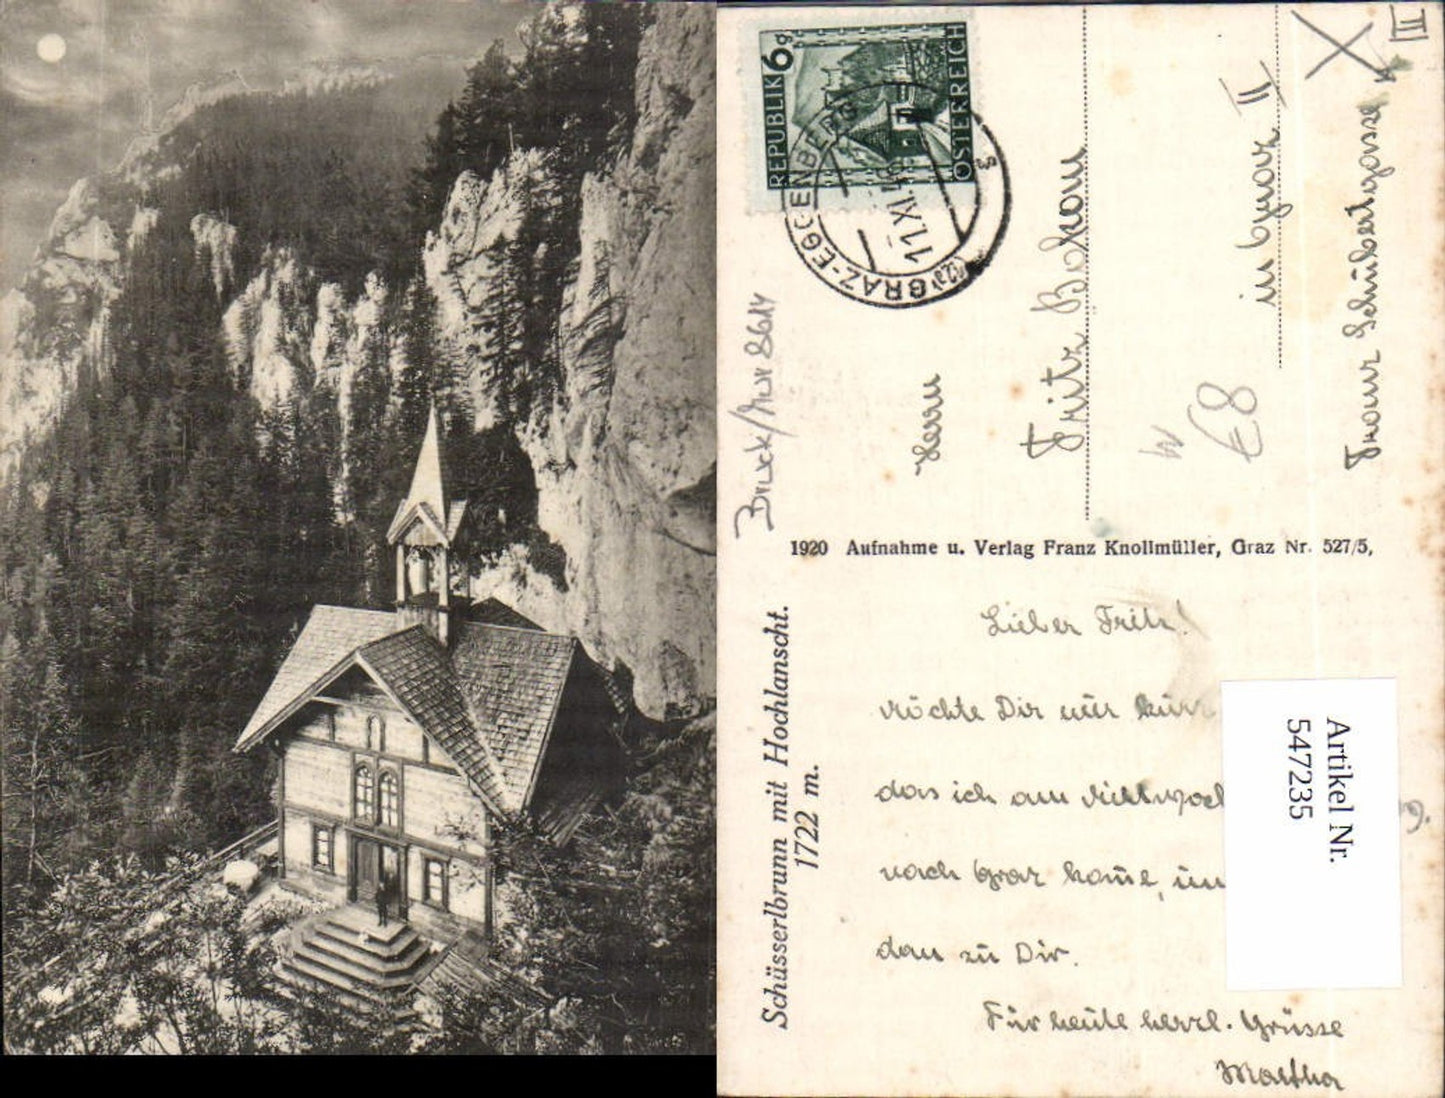 REPUBLIK
6g
ÖSTERREICH
GRAZ-EGGENBERG
11.XI.4
III
Bruck/Mur 8614
Herrn
Fritz
in Graz II
Franz Schubertgasse
€8
1920 Aufnahme u. Verlag Franz Knollmüller, Graz Nr. 527/5,
Schüsserlbrunn mit Hochlanscht.
1722 m.
Lieber Fritz!
möchte Dir nur kurz
das ich am
nach Graz kome,
dan zu Dir.
Für heute herzl. Grüsse
Martha
Artikel Nr.
547235